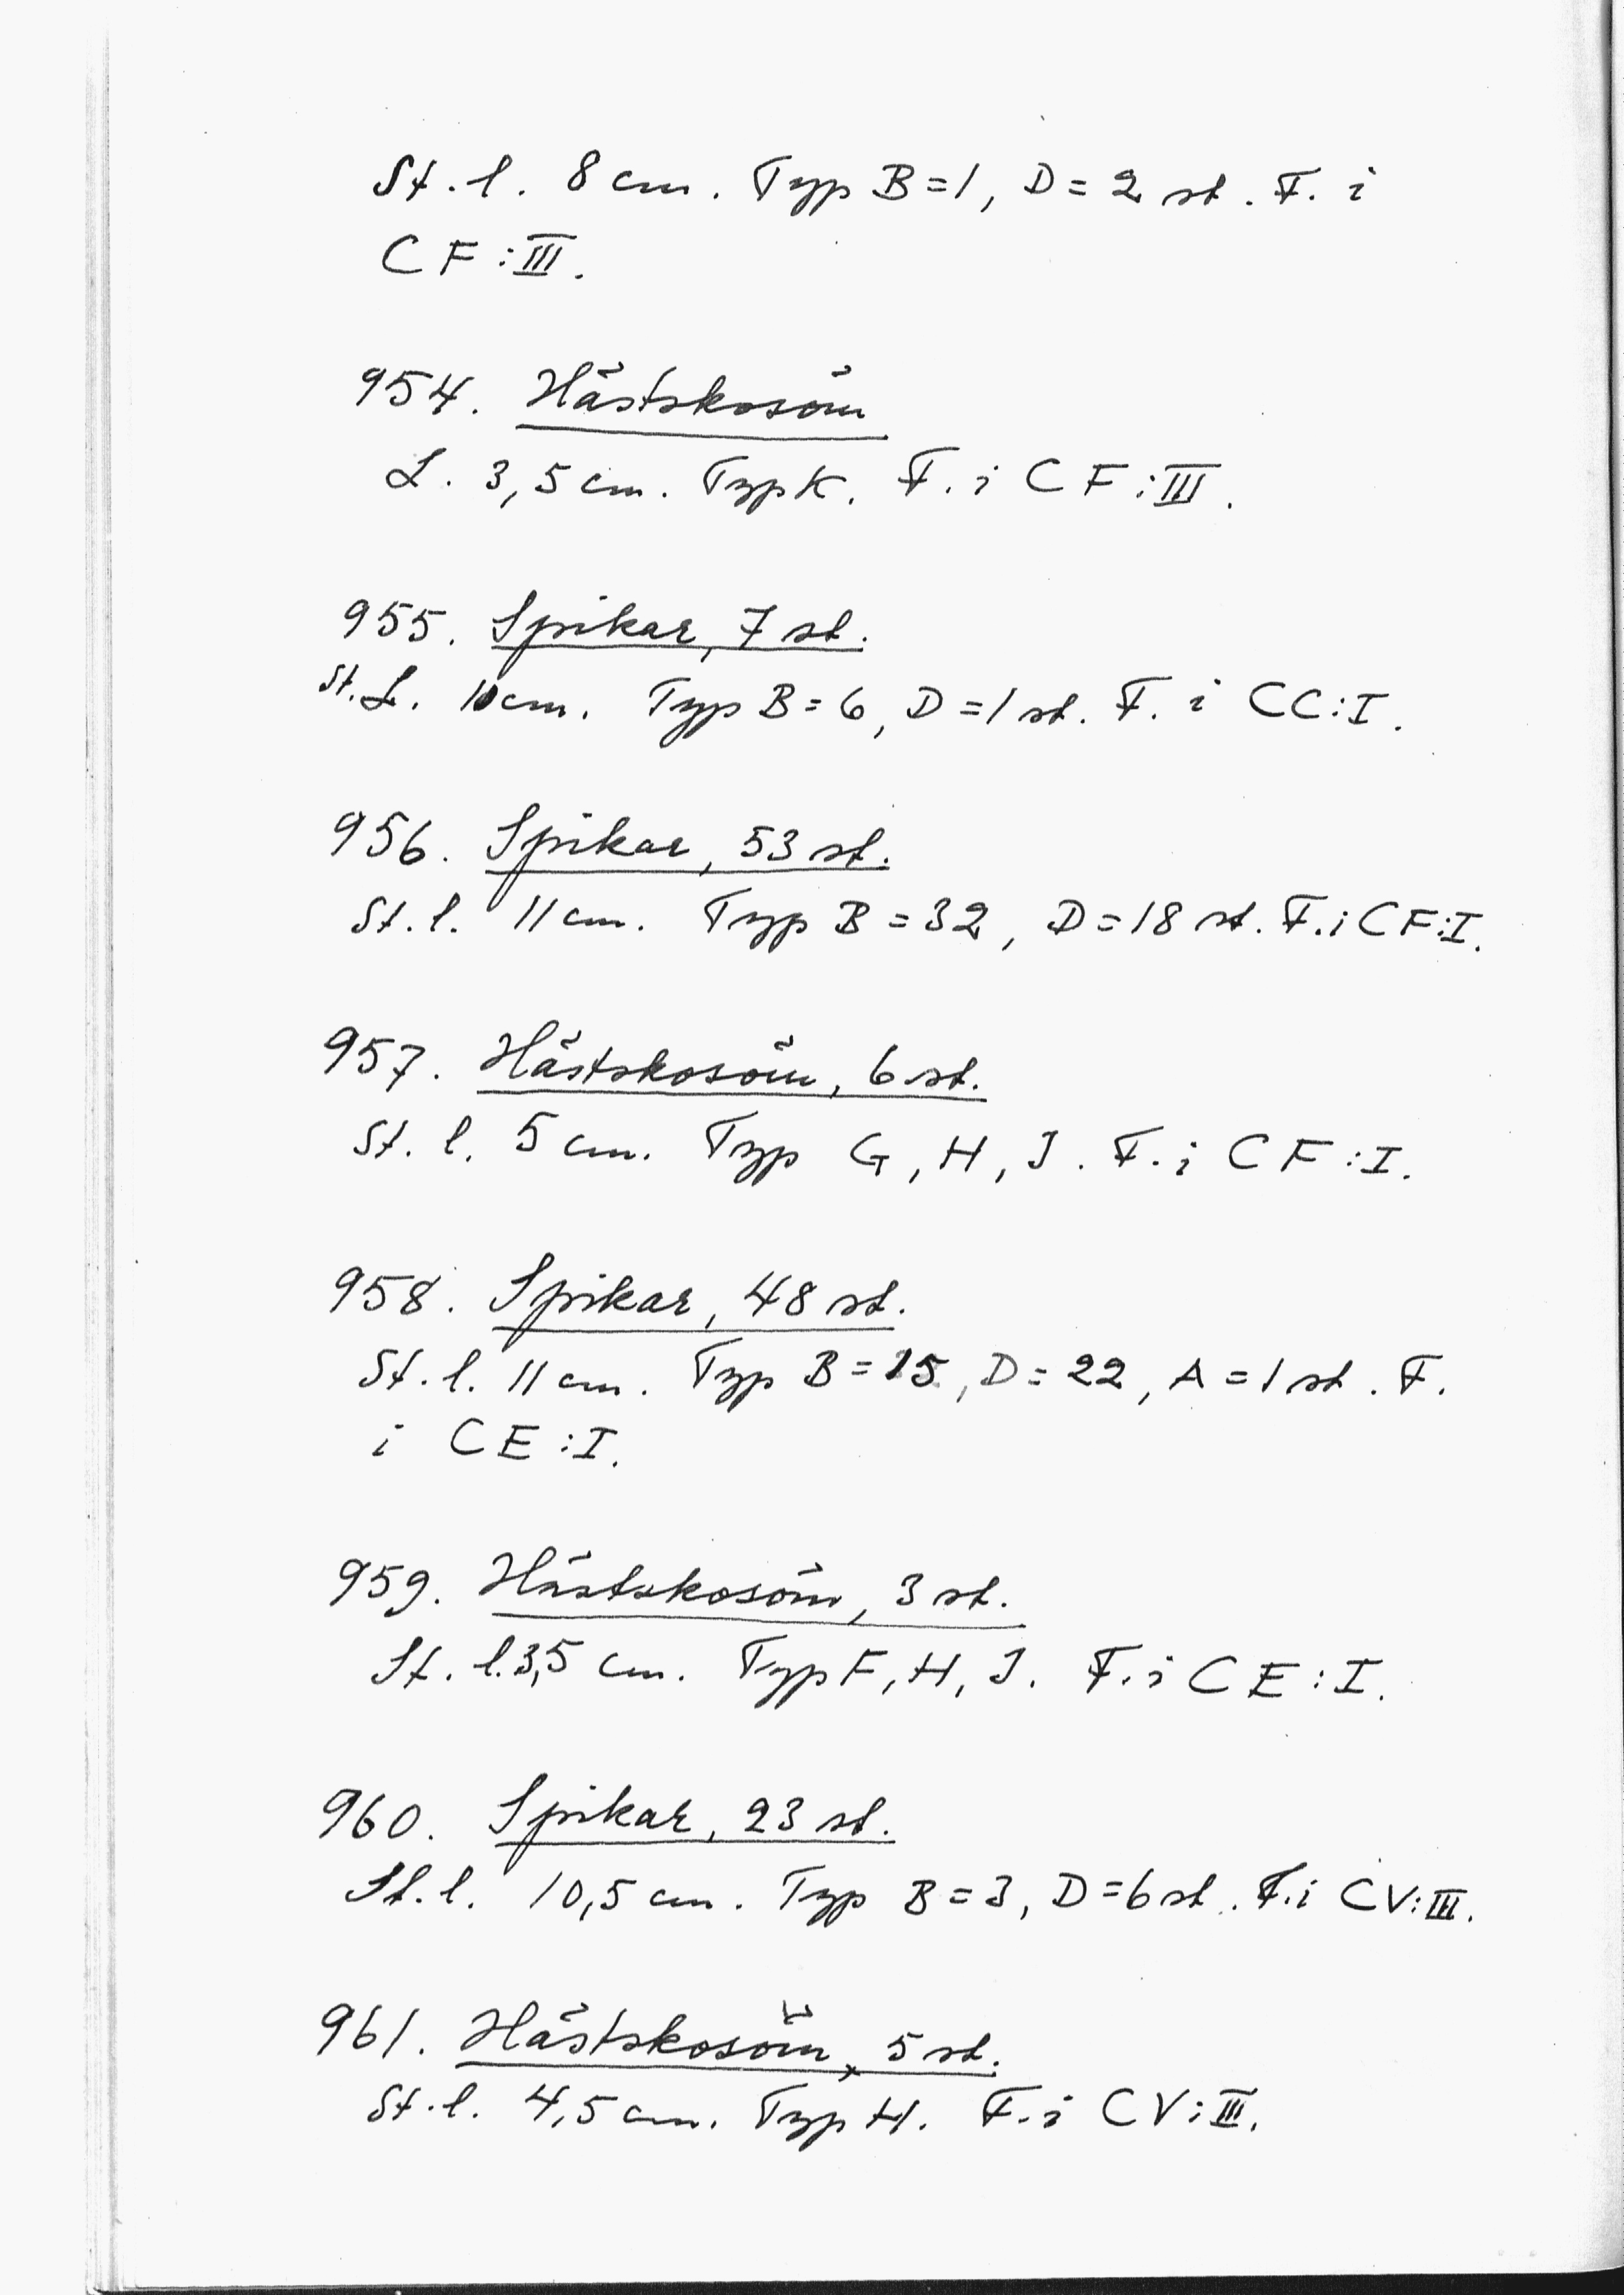 St. l. 8 cm. Typ B=1, D=2 st. F. i
CF:III.
954. Hästskosöm
L. 3,5 cm. Typ K. F. i CF:III.
955. Spikar, 7 st.
St. L. 10 cm. Typ B=6, D=1 st. F. i CC:I.
956. Spikar, 53 st.
St. l. 11 cm. Typ B=32, D=18 st. F. i CF:I.
957. Hästskosöm, 6 st.
St. l. 5 cm. Typ G, H, J. F. i CF:I.
958. Spikar, 48 st.
St. l. 11 cm. Typ B=15, D=22, A=1 st. F.
i CE:I.
959. Hästskosöm, 3 st.
St. l. 3,5 cm. Typ F, H, J. F. i CE:I.
960. Spikar, 23 st.
St. l. 10,5 cm. Typ B=3, D=6 st. F. i CV:III.
961. Hästskosöm, 5 st.
St. l. 4,5 cm. Typ H. F. i CV:III.